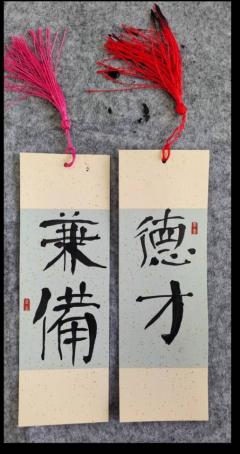 德才
兼備